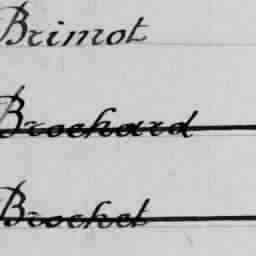 Brimot
Brochard
Brochet